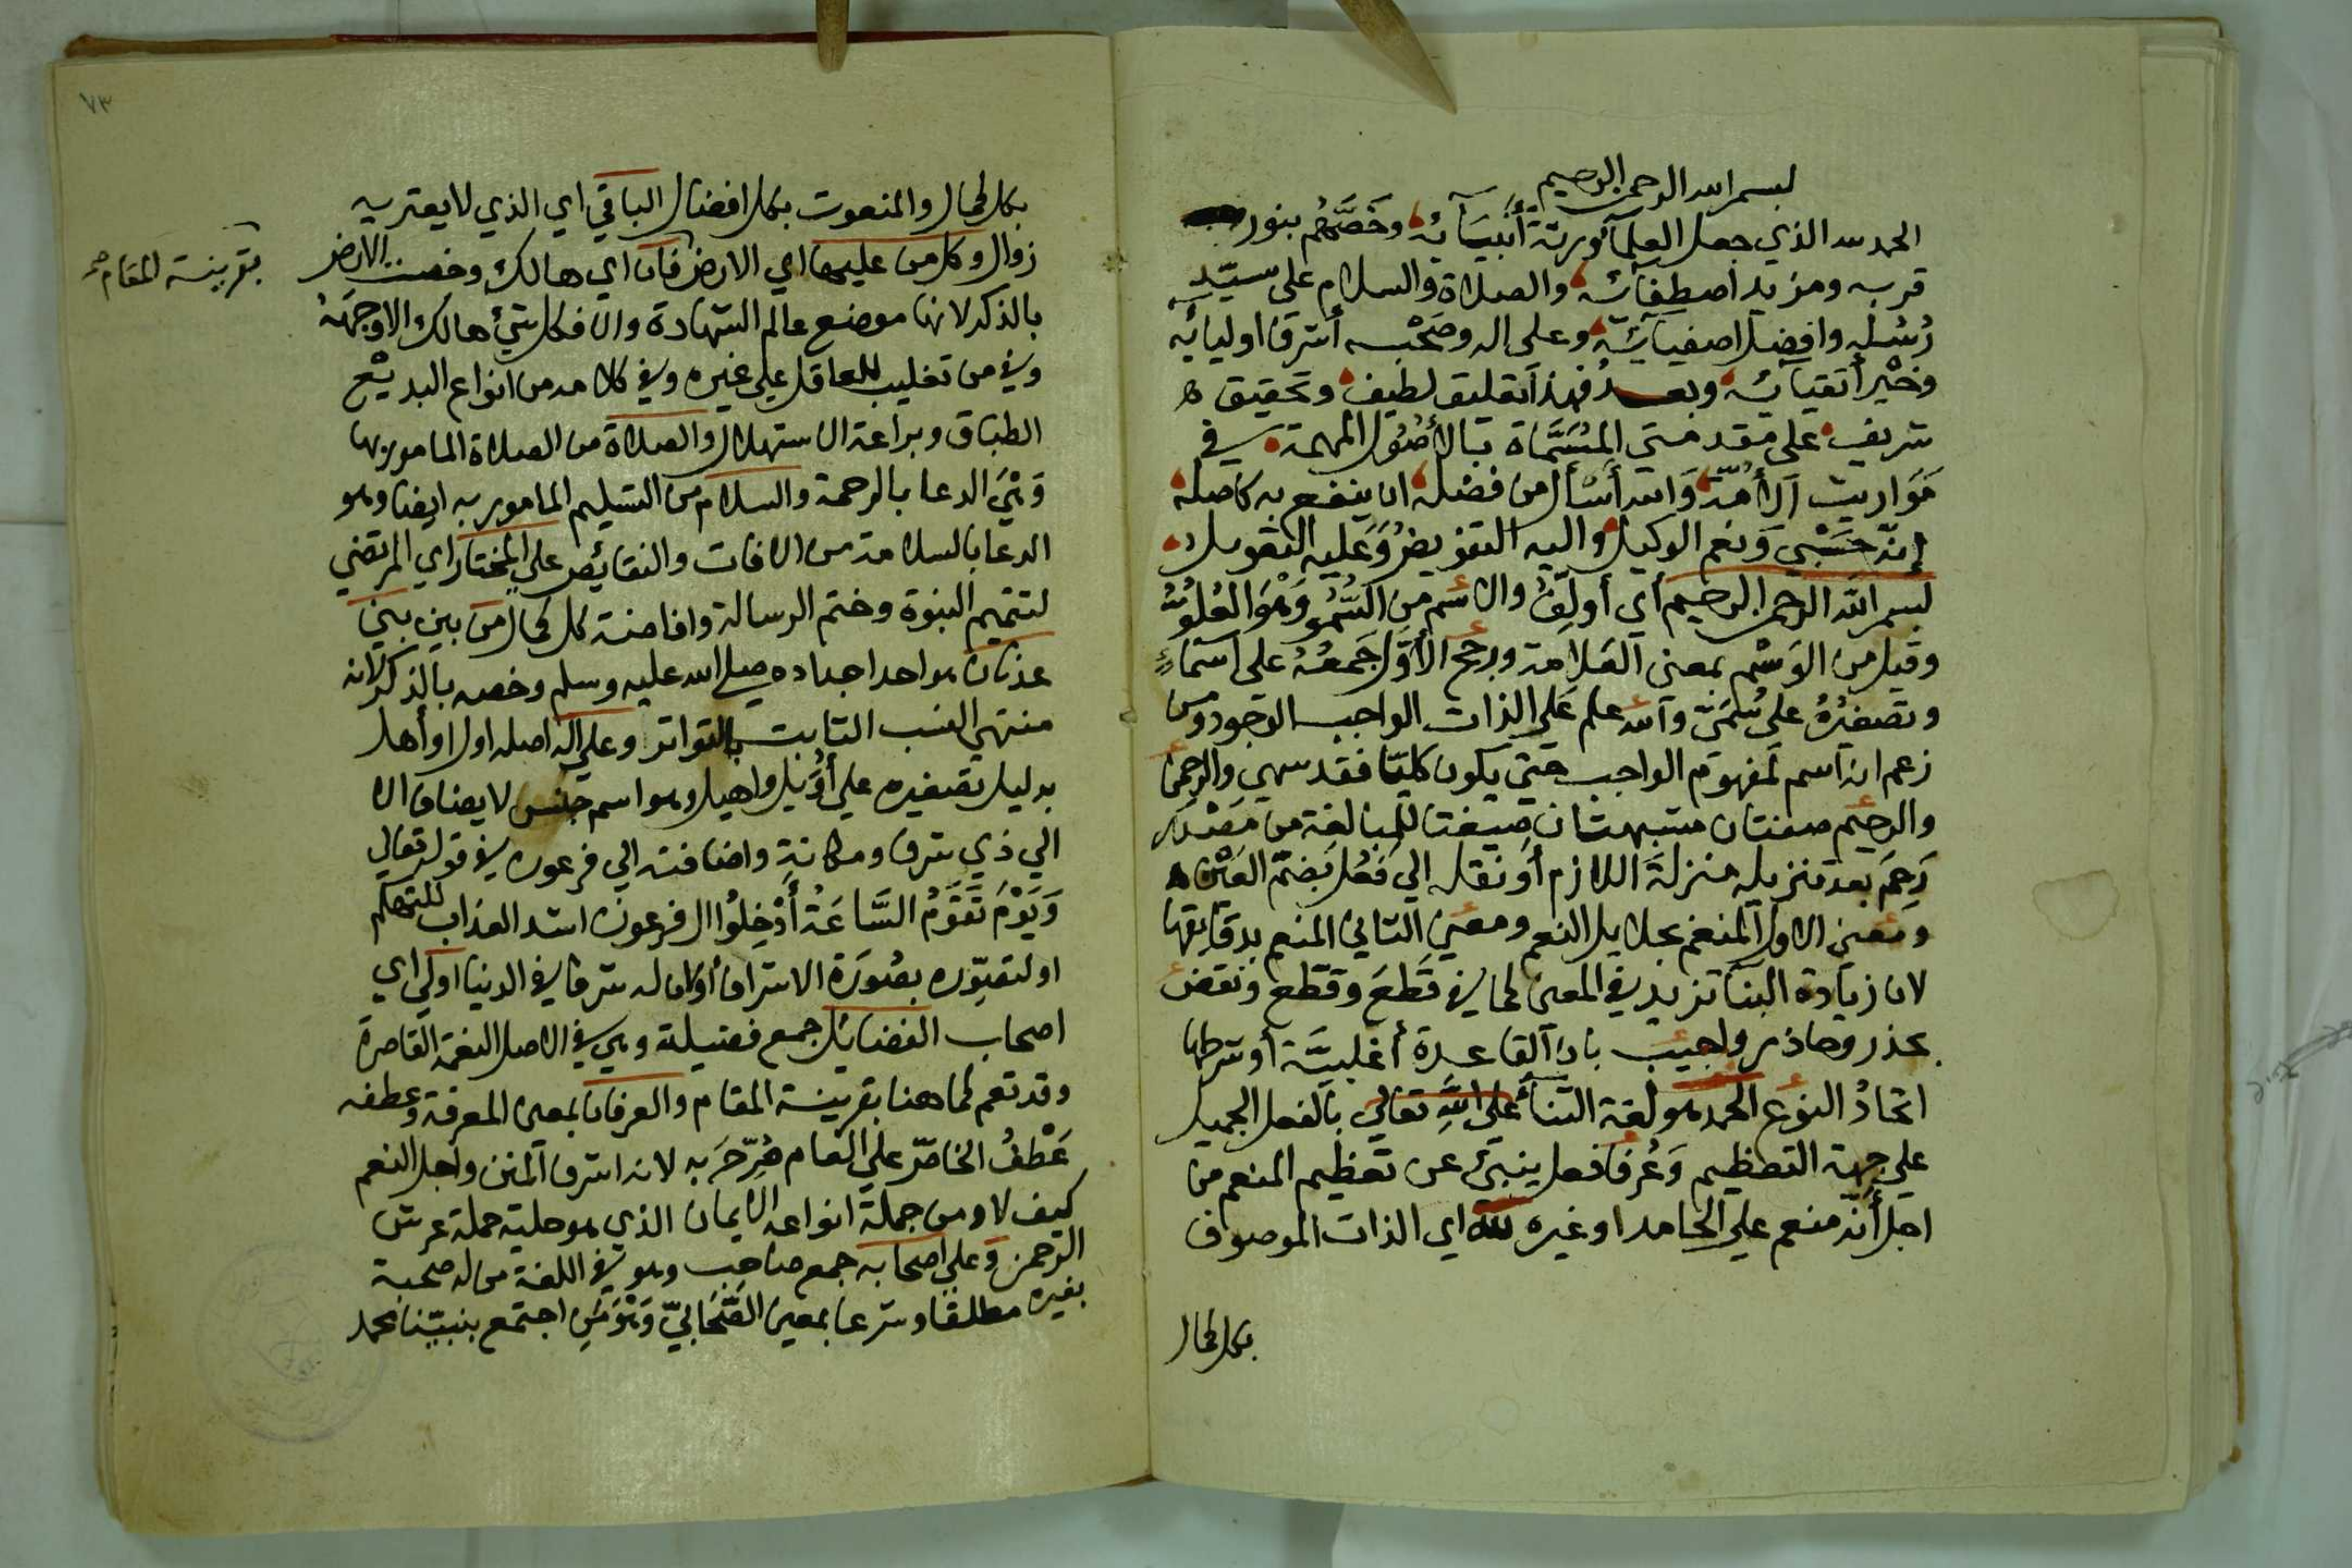 بسم الله الرحمن الرحيم
الحمد لله الذي جعل العلمآء ورثة أنبيآئه وخصّهم بنور
قربه ومزيد اصطفائه والصلاة والسلام على سيّد
رُسُله وافضل اصفيائه وعلى اله وصحبه أشرف اوليائه
وخير أتقيائه وبعد فهذا تعليق لطيف وتحقيق
شريف على مقدمتي المُسَمَّاة بالأصُول المهمة في
مَوَاريث الأمّة وَالله أسأل من فضله ان ينفع به كاصله
إنّه حَسْبي وَنعم الوكيل واليه التفويض وَعَليه التعويل
بسم الله الرحمن الرحيم أي أولِّفُ والاسم من السُّمُو وَهْوَ العُلُوّ
وقيل من الوَسْم بمعنى العَلامة ورجح الأوّل جَمعُهُ على اسماءٍ
وتصغيرُهُ على سُمَيّ والله علم عَلى الذات الواجب الوجود ومن
زعم انه اسم لمفهوم الواجب حتى يكون كليّا فقد سهى والرحمن
والرحيم صفتان مشبهتان صيغتا للمبالغة من مَصْدر
رَحِمَ بعد تنزيله منزلةَ اللازم أو نقله الى فَعُل بضمّ العَين
ومعنى الاول المنعم بجلايل النعم ومعنى الثاني المنعم بدقايقها
لان زيادة البنا تزيد في المعنى كما في قَطَعَ وقطّع ونقض
بحذر وحاذر واجيب بانّ القاعدة أغلبيَّة أو شرطها
اتحادُ النوع الحمد هو لغة الثنأ على اللهِ تعالى بالفعل الجميل
على جهة التعظيم وَعُرفا فعل ينبئ عن تعظيم المنعم من
اجل أنّه منعم على الحامد او غيره لله اي الذات الموصوف
بكل كمال
٧٣
بكل كمال والمنعوت بكل افضال الباقي اي الذي لا يعتريه
زوال وكل من عليها اي الارض فان اي هالك وخصت الارض
بقرينة المقام صح
بالذكر لانها موضع عالم الشهادة والا فكل شيء هالك الا وجهَهُ
وفي من تغليب للعاقل على غيره وفي كلامه من انواع البديع
الطباق وبراعة الاستهلال والصلاة من الصلاة المامور بها
وَهْيَ الدعا بالرحمة والسلام من التسليم المامور به ايضا وهو
الدعا بالسلامة من الافات والنقائص على المختار اي المرتضي
لتتميم النبوة وختم الرسالة وافاضة كل كمال من بين بني
عدنان هو احد اجداده صلى الله عليه وسلم وخصه بالذكر لانه
منتهي النسب الثابت بالتواتر وعلى اله اصله اول او أهل
بدليل تصغيره على أوَيْل واهيل وهو اسم جنس لا يضاف الا
الي ذي شرف ومكانة واضافته الى فرعون في قوله تعالى
وَيَوْمَ تَقوَمُ السَّاعَةُ أَدْخِلُوا ال فرعون اشد العذاب للتهكم
او لتصوّره بصُورَة الاشراف أو كان له شرف في الدنيا اولى اي
اصحاب الفضائل جمع فضيلة وهي في الاصل النعمة القاصرة
وقد تعم كما هنا بقرينة المقام والعرفان بمعنى المعرفة وعطفه
عَطْفُ الخاصّ على العام صُرّحَ به لانه اشرف المنن واجل النعم
كيف لا ومن جملة انواعه الايمان الذي هو حلية حملة عرش
الرحمن وعلى اصحابه جمع صاحب وهو في اللغة من له صحبة
بغيره مطلقا وشرعا بمعنى الصَّحَابيّ وَهْوَ مَن اجتمع بنبيّنا محمد